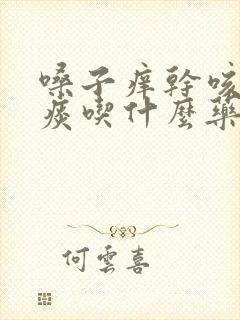 嗓子痒幹咳
痰喫什麽藥
何雲喜